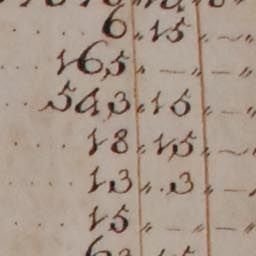 6 „ 15 „ — „
165 „ — „ — „
543 „ 15 „ — „
18 „ 15 „ — „
13 „ 3 „ — „
15 „ — „ — „